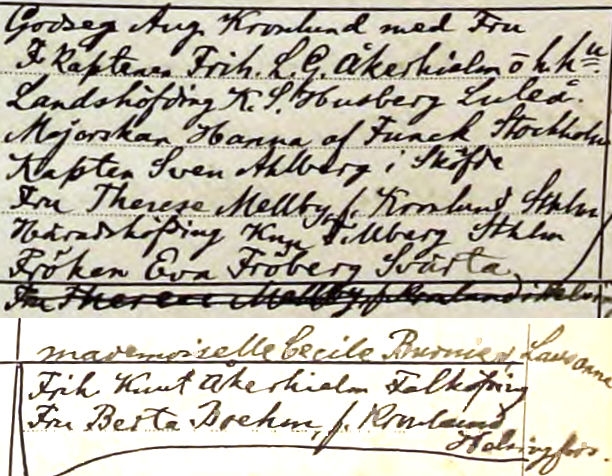 Godseg Aug. Kronlund med Fru
F Kaptenen Frih. L. G. Åkerhielm o hh u
Landshöfding K. S. Husberg Luleå.
Majorskan Hanna af Funck Stockholm
Kapten Sven Ahlberg i Sköfde
Fru Therese Mellby, f. Kronlund Sthlm
Häradshöfding Knut Tillberg Sthlm
Fröken Eva Fröberg Svärta
Fru Therese Mellby f. Kronlund
mademoiselle Cecile Burnier, Lausanne
Frih. Knut Åkerhielm Falköping
Fru Berta Boehm, f. Kronlund
Helsingfors.